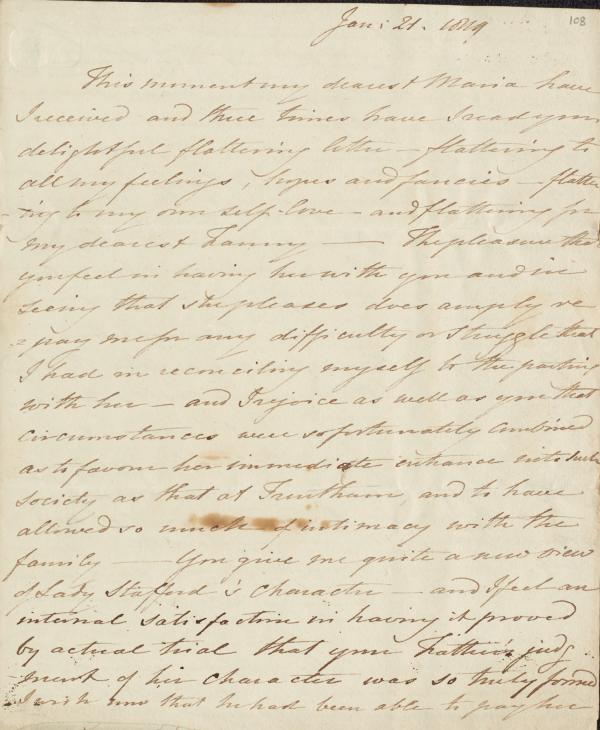 Jan: 21. 1819
108
This moment my dearest Maria have
I received and three times have I read your
delightful flattering letter — flattering to
all my feelings, hopes and fancies — flatter
-ing to my own self-love — and flattering for
my dearest Fanny —— The pleasure that
you feel in having her with you and in
seeing that she pleases does amply re
=pay me for any difficulty or struggle that
I had in reconciling myself to the parting
with her — and I rejoice as well as you that
circumstances were so fortunately combined
as to favour her immediate entrance into such
society as that at Trentham and to have
allowed so much of intimacy with the
family —— You give me quite a new view
of Lady Stafford's character — and I feel an
internal satisfaction in having it proved
by actual trial that your Father's judg
ment of her character was so truly formed
I wish now that he had been able to pay her